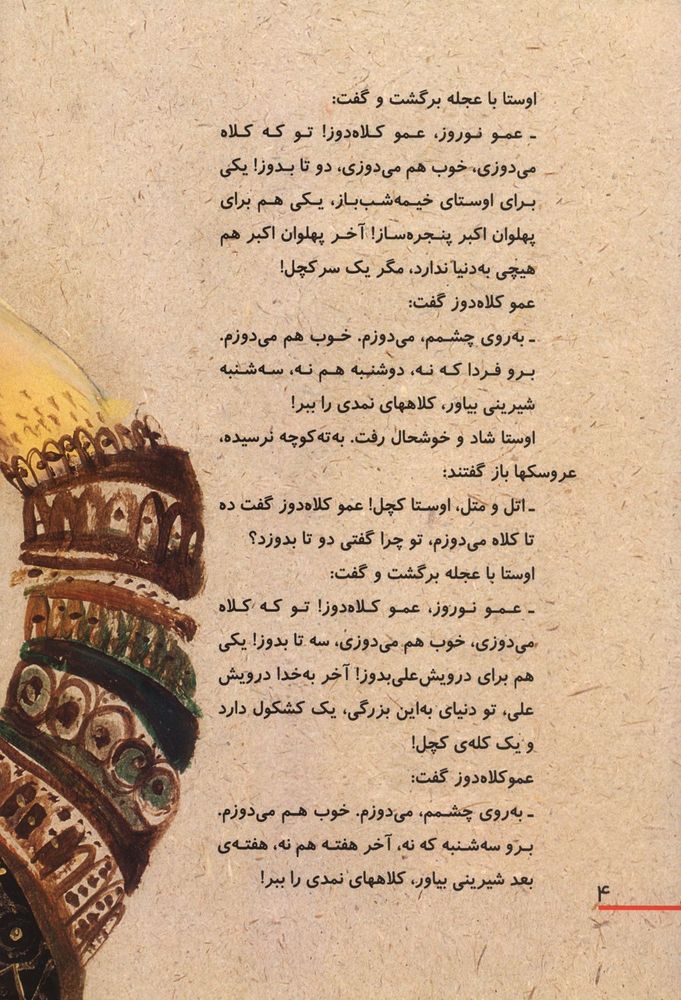 اوستا با عجله برگشت و گفت:
ـ عمو نوروز، عمو کلاه‌دوز! تو که کلاه
می‌دوزی، خوب هم می‌دوزی، دو تا بدوز! یکی
برای اوستای خیمه‌شب‌باز، یکی هم برای
پهلوان اکبر پنجره‌ساز! آخر پهلوان اکبر هم
هیچی به‌دنیا ندارد، مگر یک سر کچل!
عمو کلاه‌دوز گفت:
ـ به‌روی چشمم، می‌دوزم. خوب هم می‌دوزم.
برو فردا که نه، دوشنبه هم نه، سه‌شنبه
شیرینی بیاور، کلاههای نمدی را ببر!
اوستا شاد و خوشحال رفت. به‌ته‌کوچه نرسیده،
عروسکها باز گفتند:
ـ اتل و متل، اوستا کچل! عمو کلاه‌دوز گفت ده
تا کلاه می‌دوزم، تو چرا گفتی دو تا بدوزد؟
اوستا با عجله برگشت و گفت:
ـ عمو نوروز، عمو کلاه‌دوز! تو که کلاه
می‌دوزی، خوب هم می‌دوزی، سه تا بدوز! یکی
هم برای درویش‌علی‌بدوز! آخر به‌خدا درویش
علی، تو دنیای به‌این بزرگی، یک کشکول دارد
و یک کله‌ی کچل!
عموکلاه‌دوز گفت:
ـ به‌روی چشمم، می‌دوزم. خوب هم می‌دوزم.
برو سه‌شنبه که نه، آخر هفته هم نه، هفته‌ی
بعد شیرینی بیاور، کلاههای نمدی را ببر!
۴